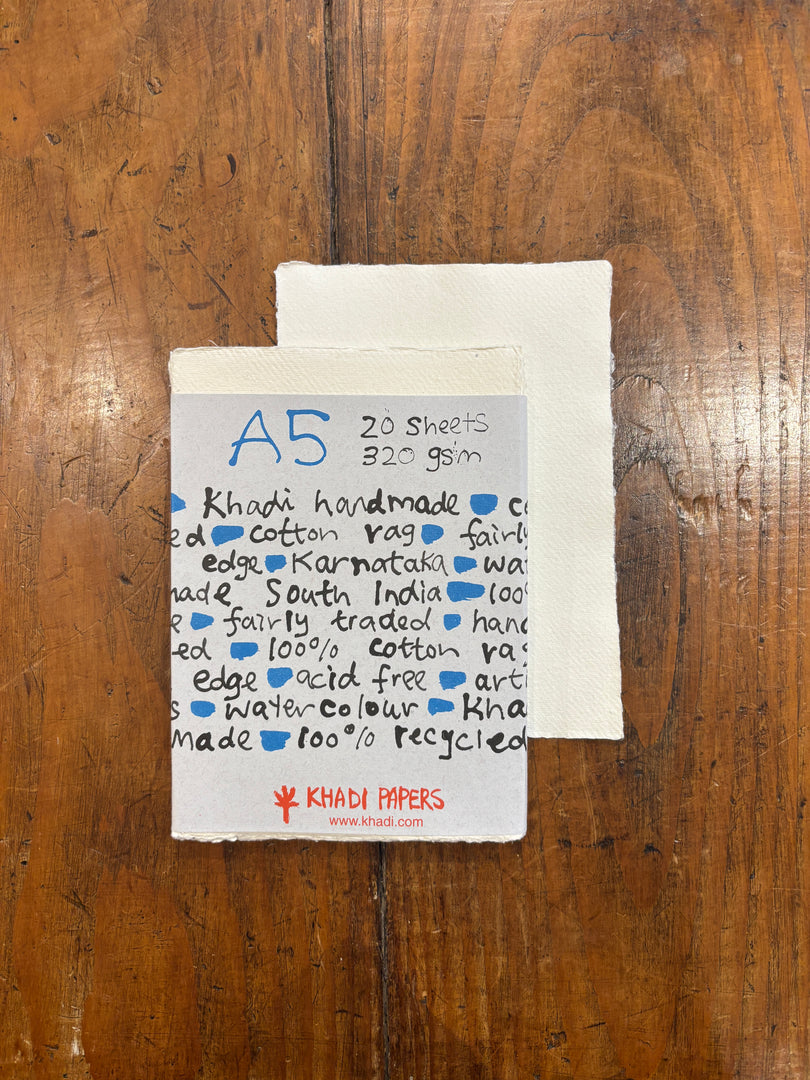 A5
20 sheets
320 gsm
Khadi handmade c
ed cotton rag fairly
edge Karnataka wa
made South India 100
e fairly traded hand
ed 100% cotton rag
edge acid free arti
s watercolour Kha
made 100% recycled
KHADI PAPERS
www.khadi.com